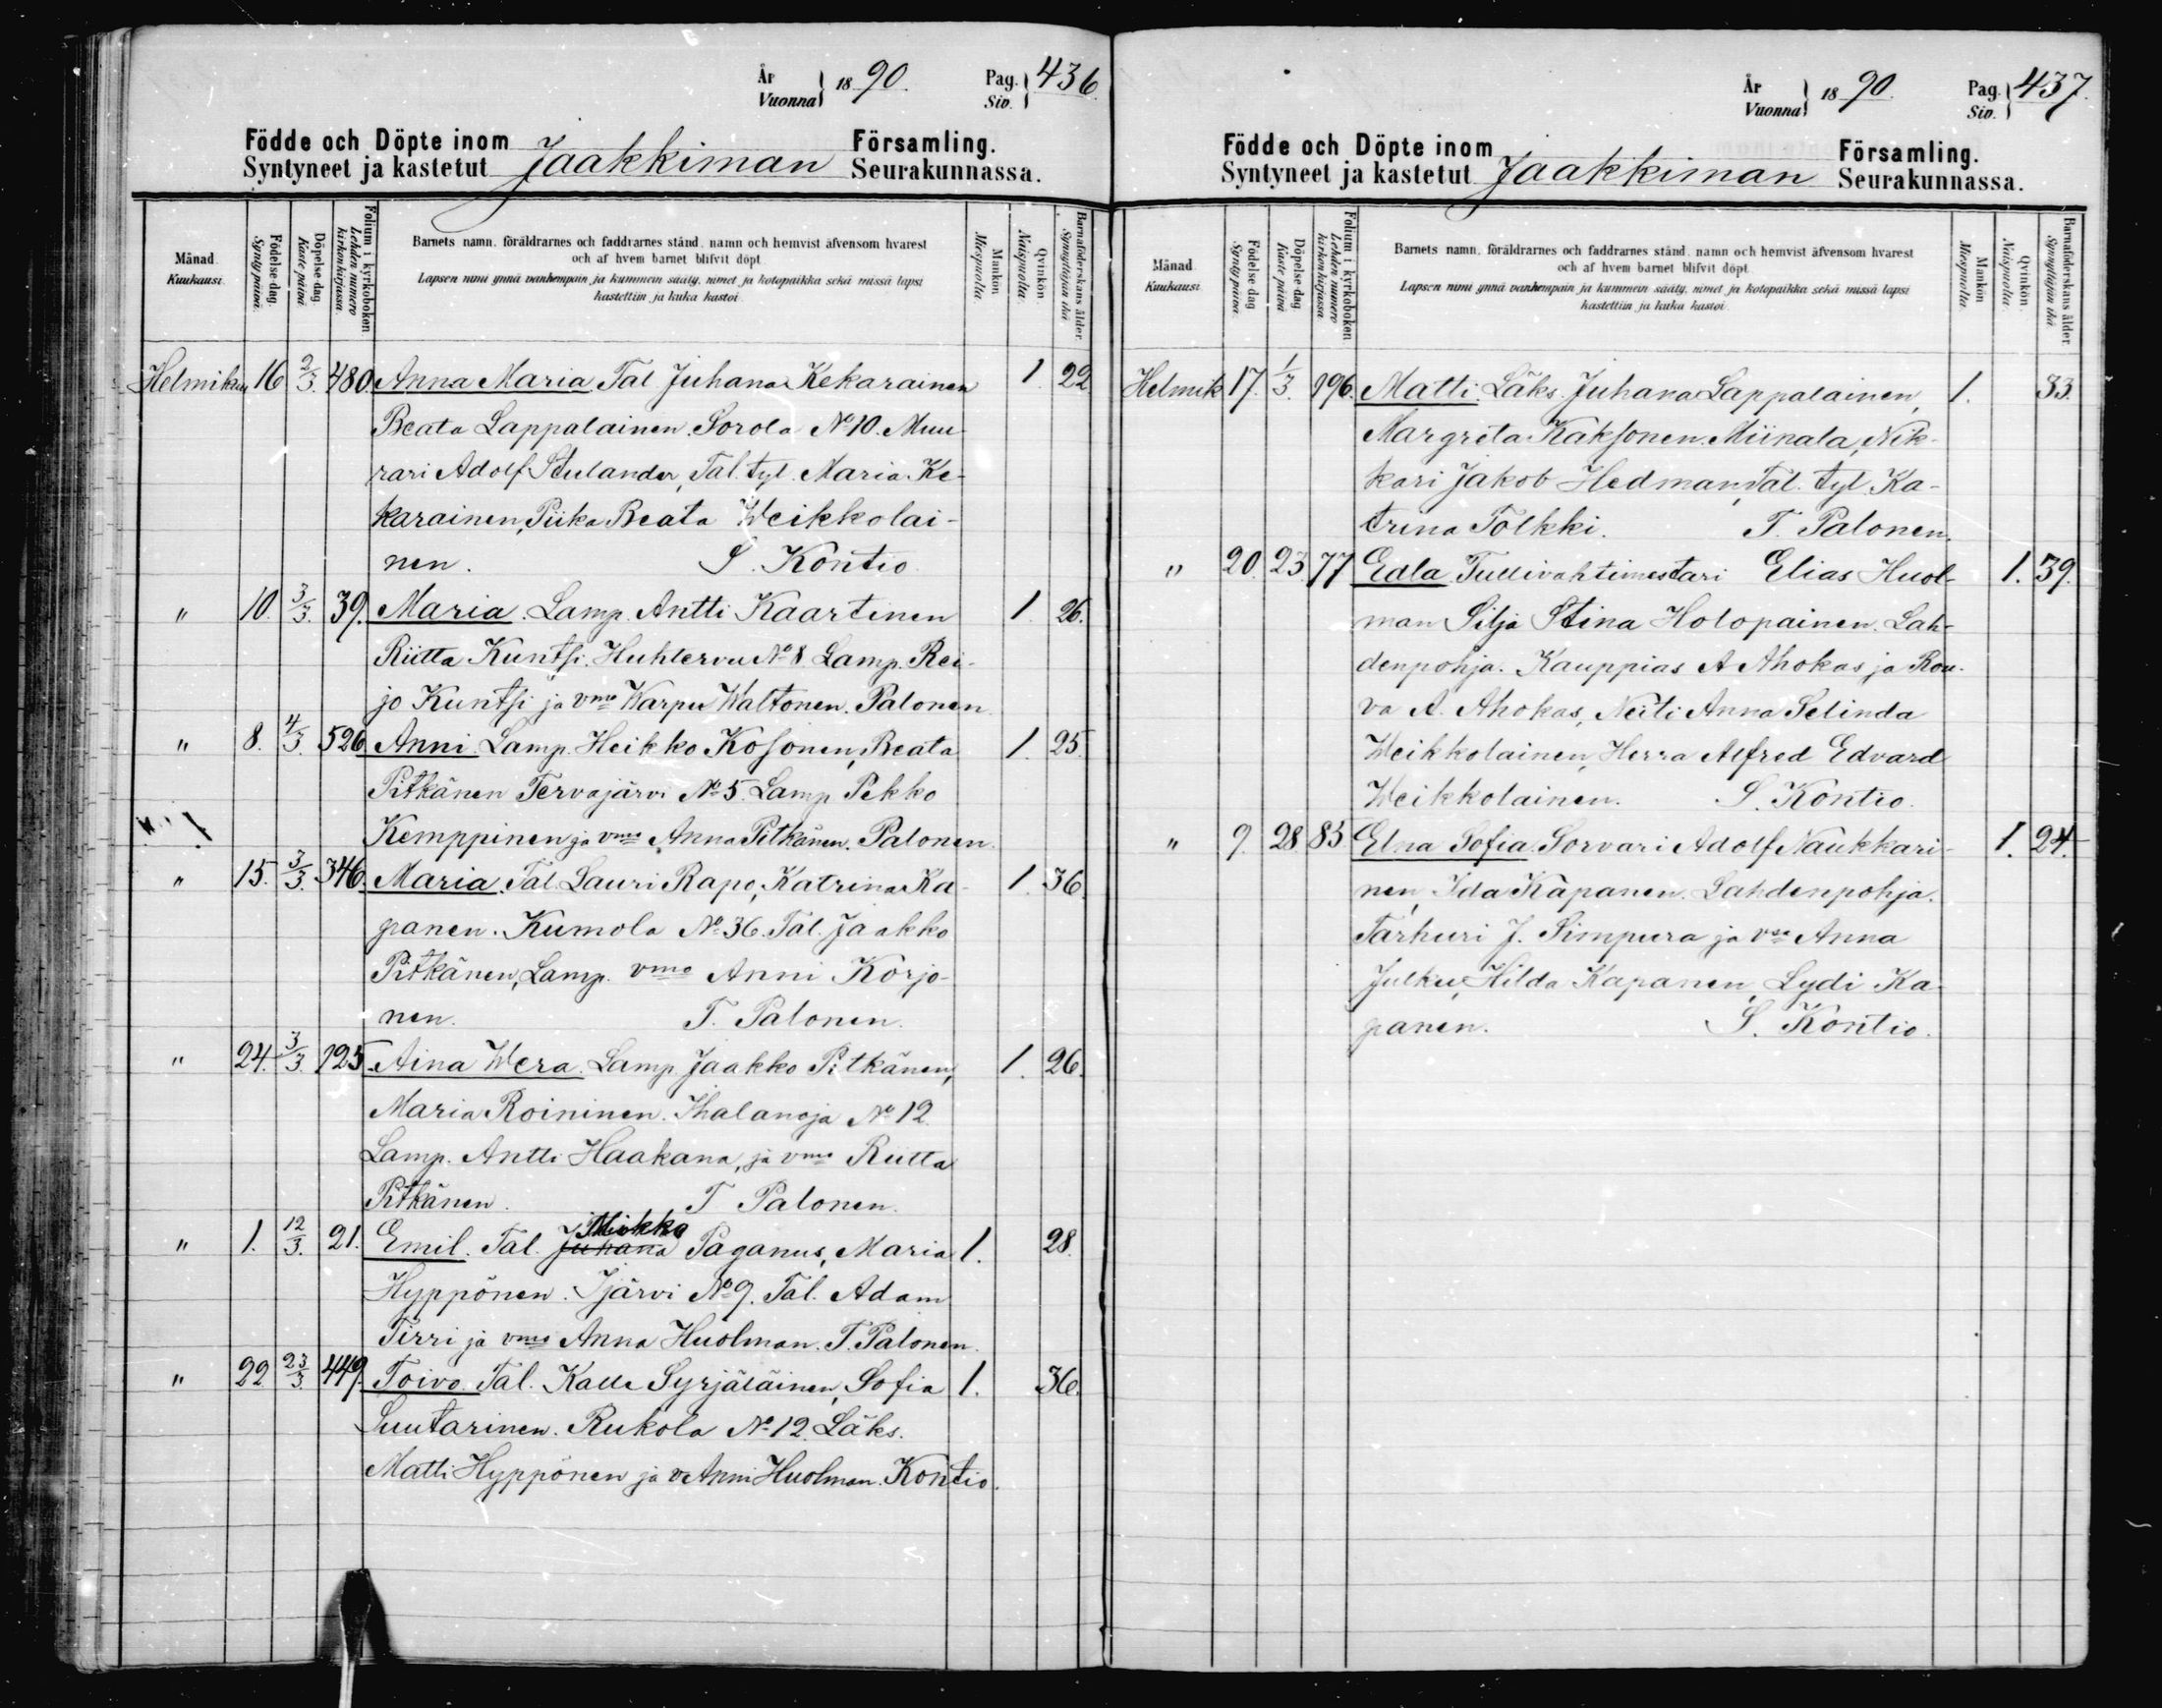 År
Vuonna } 1890. Pag.
Siv. } 436.
Födde och Döpte inom Församling.
Syntyneet ja kastetut Jaakkiman Seurakunnassa.
Månad.
Kuukausi.
Födelse dag.
Synty päivä.
Döpelse dag.
Kaste päivä.
Folium i kyrkobokon
Lehden numero
kirkonkirjassa.
Barnets namn, föräldrarnes och faddrarnes stånd, namn och hemvist äfvensom hvarest
och af hvem barnet blifvit döpt.
Lapsen nimi ynnä vanhempain ja kummein sääty, nimet ja kotopaikka sekä missä lapsi
kastettiin ja kuka kastoi.
Mankön.
Miespuolia.
Qvinkön.
Naispuolia.
Barnaföderskans ålder.
Synnyttäjän ikä.
Helmikuu 16 2/3. 480. Anna Maria Tal Juhana Kekarainen 1. 22
Beata Lappalainen. Sorola No 10. Muu-
rari Adolf Stulander, Tal. tyt. Maria Ke-
karainen, Piika Beata Weikkolai-
nen. S. Kontio
" 10. 3/3. 39. Maria. Lamp. Antti Kaartinen 1 26.
Riitta Kuntsi. Huhtervu No 8 Lamp. Rei-
jo Kuntsi ja vmo Warpu Waltonen. Palonen.
" 8. 4/3. 526 Anni Lamp. Heikko Kosonen, Beata 1. 25.
Pitkänen Tervajärvi No 5. Lamp Pekko
Kemppinen ja vmo Anna Pitkänen. Palonen.
" 15. 3/3. 346. Maria. Tal. Lauri Rapo, Katrina Ka- 1. 36.
panen. Kumola No 36. Tal. Jaakko
Pitkänen, Lamp. vmo Anni Korjo-
nen. T. Palonen.
" 24. 3/3. 125. Aina Wera. Lamp Jaakko Pitkänen, 1. 26.
Maria Roininen. Ihalanoja No 12.
Lamp. Antti Haakana, ja vmo Riitta
Pitkänen. T Palonen.
Mikko
" 1. 12/3. 21. Emil. Tal. Juhana Paganus, Maria 1. 28.
Hyppönen. Ijärvi No 9. Tal. Adam
Tirri ja vmo Anna Huolman. T. Palonen.
" 22 23/3 449. Toivo. Tal. Kalle Syrjäläinen, Sofia 1. 36.
Suutarinen. Rukola No 12. Läks.
Matti Hyppönen ja v. Anni Huolman. Kontio.
År
Vuonna } 1890. Pag.
Siv. } 437.
Födde och Döpte inom Församling.
Syntyneet ja kastetut Jaakkiman Seurakunnassa.
Månad.
Kuukausi.
Födelse dag.
Synty päivä.
Döpelse dag.
Kaste päivä.
Folium i kyrkobokon
Lehden numero
kirkonkirjassa.
Barnets namn, föräldrarnes och faddrarnes stånd, namn och hemvist äfvensom hvarest
och af hvem barnet blifvit döpt.
Lapsen nimi ynnä vanhempain ja kummein sääty, nimet ja kotopaikka sekä missä lapsi
kastettiin ja kuka kastoi.
Mankön.
Miespuolia.
Qvinkön.
Naispuolia.
Barnaföderskans ålder.
Synnyttäjän ikä.
Helmik 17. 1/3. 196. Matti. Läks. Juhana Lappalainen, 1. 33.
Margreta Kaksonen. Miinala, Nik-
kari Jakob Hedman, Tal. tyt. Ka-
trina Tolkki. T. Palonen.
" 20. 23 77 Edla. Tullivahtimestari Elias Huol- 1. 39.
man Silja Stina Holopainen. Lah-
denpohja. Kauppias A Ahokas ja Rou-
va A. Ahokas, Neiti Anna Selinda
Weikkolainen, Herra Alfred Edvard
Weikkolainen. S. Kontio.
" 9. 28 85. Elna Sofia. Sorvari Adolf Naukkari- 1. 24.
nen, Ida Kapanen. Lahdenpohja.
Tarhuri J. Simpura ja vmo Anna
Julku, Hilda Kapanen, Lydi Ka-
panen. S. Kontio.